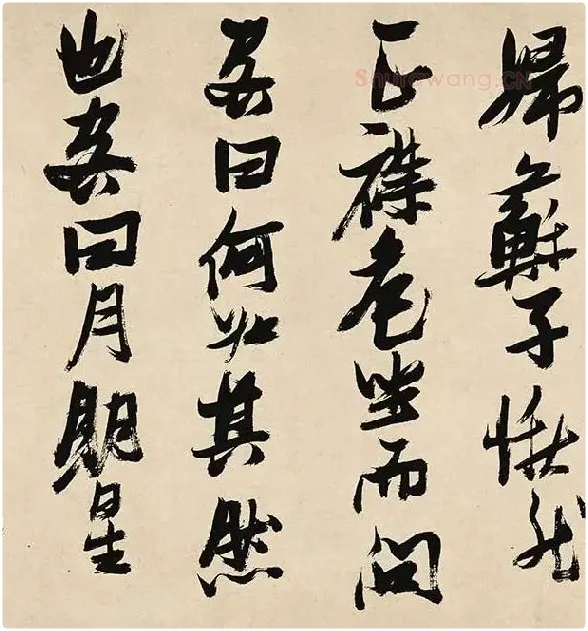 婦蘇子愀然
正襟危坐而問
客曰何為其然
也客曰月明星
Shufawang.CN